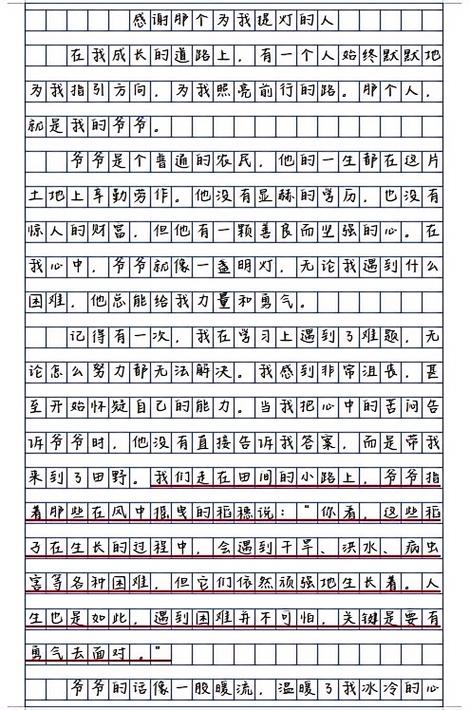 感谢那个为我提灯的人
在我成长的道路上，有一个人始终默默地
为我指引方向，为我照亮前行的路。那个人，
就是我的爷爷。
爷爷是个普通的农民，他的一生都在这片
土地上辛勤劳作。他没有显赫的学历，也没有
惊人的财富，但他有一颗善良而坚强的心。在
我心中，爷爷就像一盏明灯，无论我遇到什么
困难，他总能给我力量和勇气。
记得有一次，我在学习上遇到了难题，无
论怎么努力都无法解决。我感到非常沮丧，甚
至开始怀疑自己的能力。当我把心中的苦闷告
诉爷爷时，他没有直接告诉我答案，而是带我
来到了田野。我们走在田间的小路上，爷爷指
着那些在风中摇曳的稻穗说："你看，这些稻
子在生长的过程中，会遇到干旱、洪水、病虫
害等各种困难，但它们依然顽强地生长着。人
生也是如此，遇到困难并不可怕，关键是要有
勇气去面对。"
爷爷的话像一股暖流，温暖了我冰冷的心